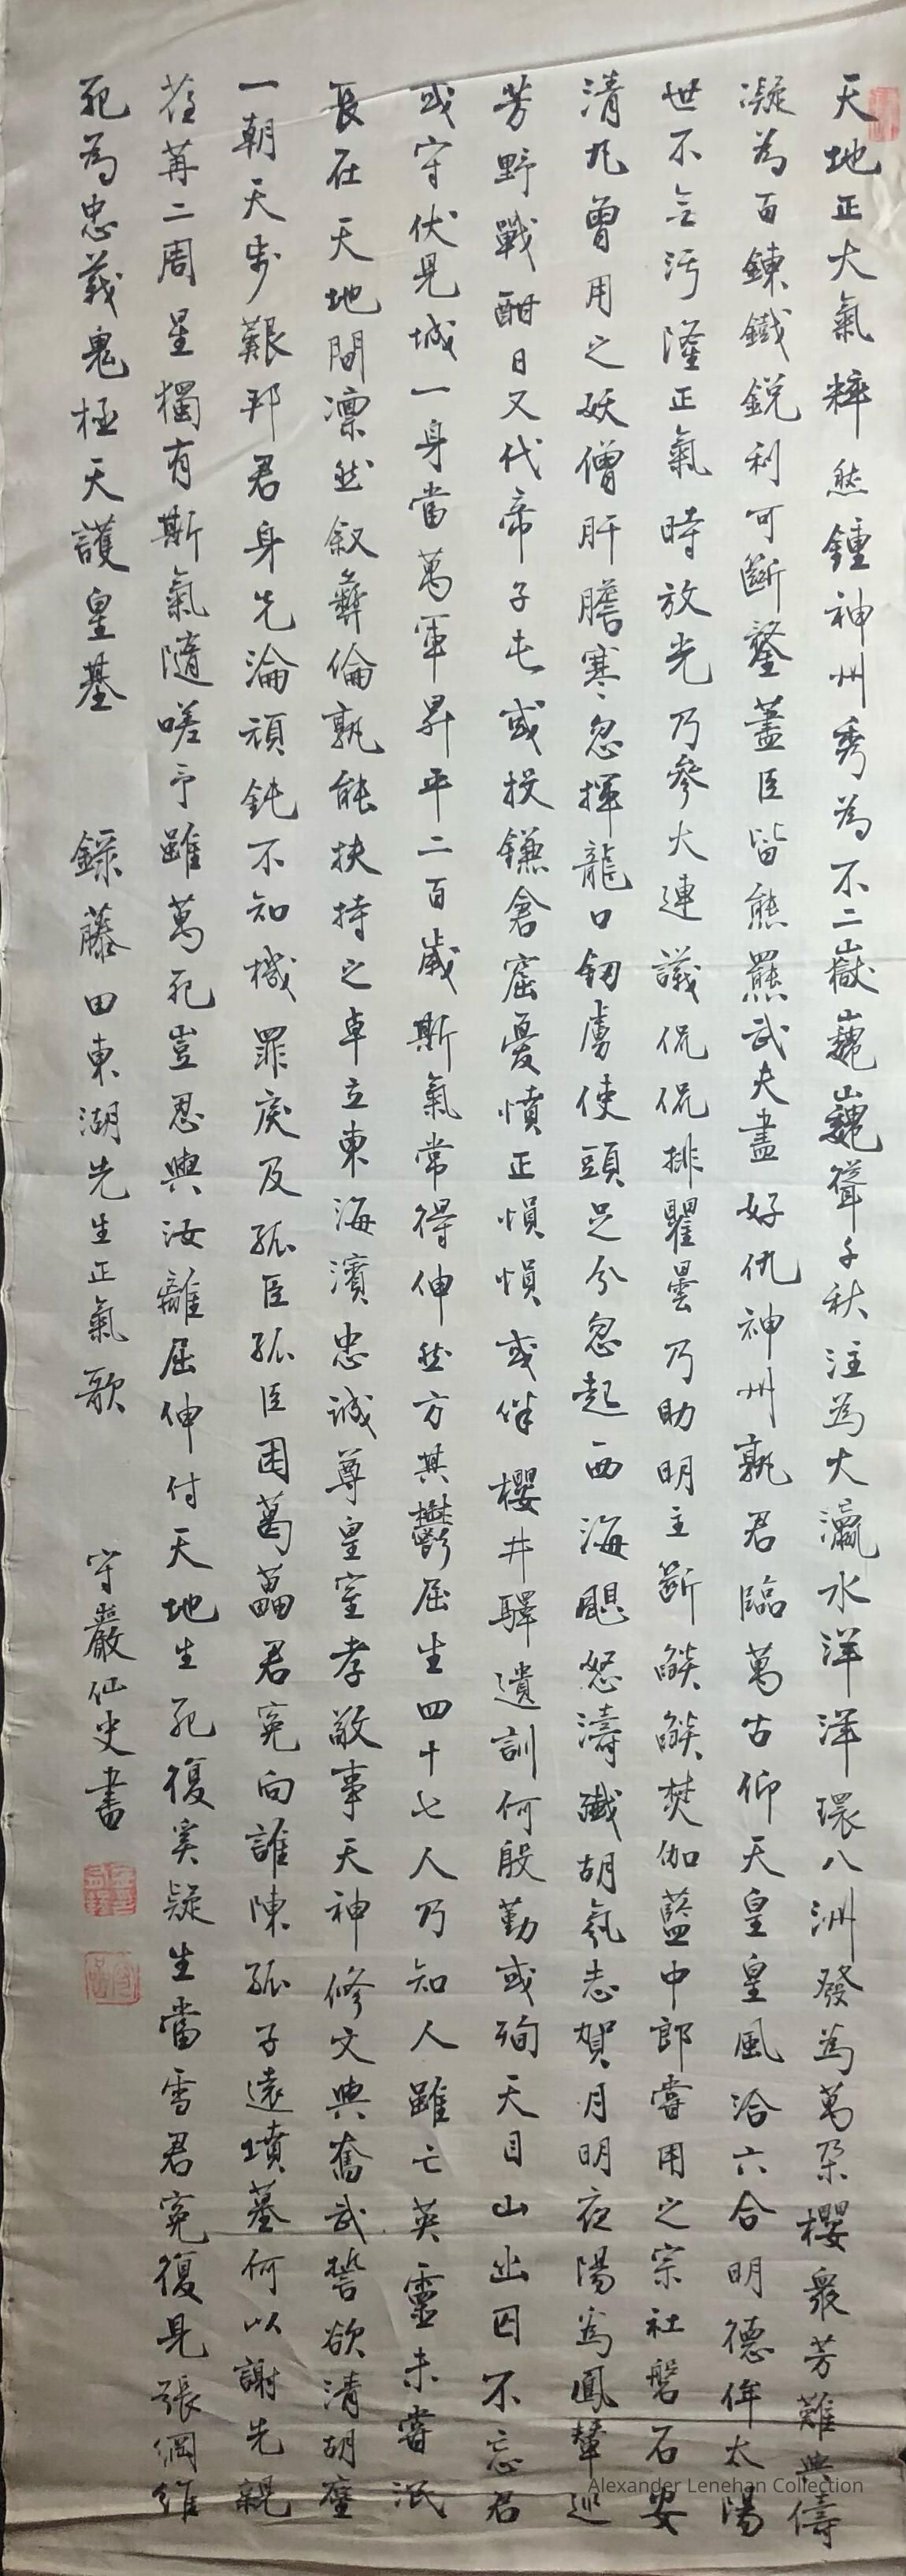 天地正大氣粹然鍾神州秀為不二嶽巍巍聳千秋注為大瀛水洋洋環八洲發為萬朶櫻衆芳難與儔
凝為百鍊鐵銳利可斷鍪藎臣皆熊羆武夫盡好仇神州孰君臨萬古仰天皇皇風洽六合明德侔太陽
世不無汚隆正氣時放光乃參大連議侃侃排瞿曇乃助明主斷燄燄焚伽藍中郎嘗用之宗社磐石安
清丸曾用之妖僧肝膽寒忽揮龍口劒虜使頭足分忽起西海颶怒濤殲胡氛志賀月明夜陽為鳳輦巡
芳野戰酣日又代帝子屯或投鎌倉窟憂憤正愪愪或伴櫻井驛遺訓何殷勤或殉天目山幽囚不忘君
或守伏見城一身當萬軍昇平二百歲斯氣常得伸然方其鬱屈生四十七人乃知人雖亡英靈未嘗泯
長在天地間凛然叙彝倫孰能扶持之卓立東海濱忠誠尊皇室孝敬事天神修文與奮武誓欲清胡塵
一朝天步艱邦君身先淪頑鈍不知機罪戾及孤臣孤臣困葛藟君冤向誰陳孤子遠墳墓何以謝先親
荏苒二周星獨有斯氣隨嗟予雖萬死豈忍與汝離屈伸付天地生死復奚疑生當雪君冤復見張綱維
死為忠義鬼極天護皇基 錄藤田東湖先生正氣歌 守巖仙史書
Alexander Lenehan Collection